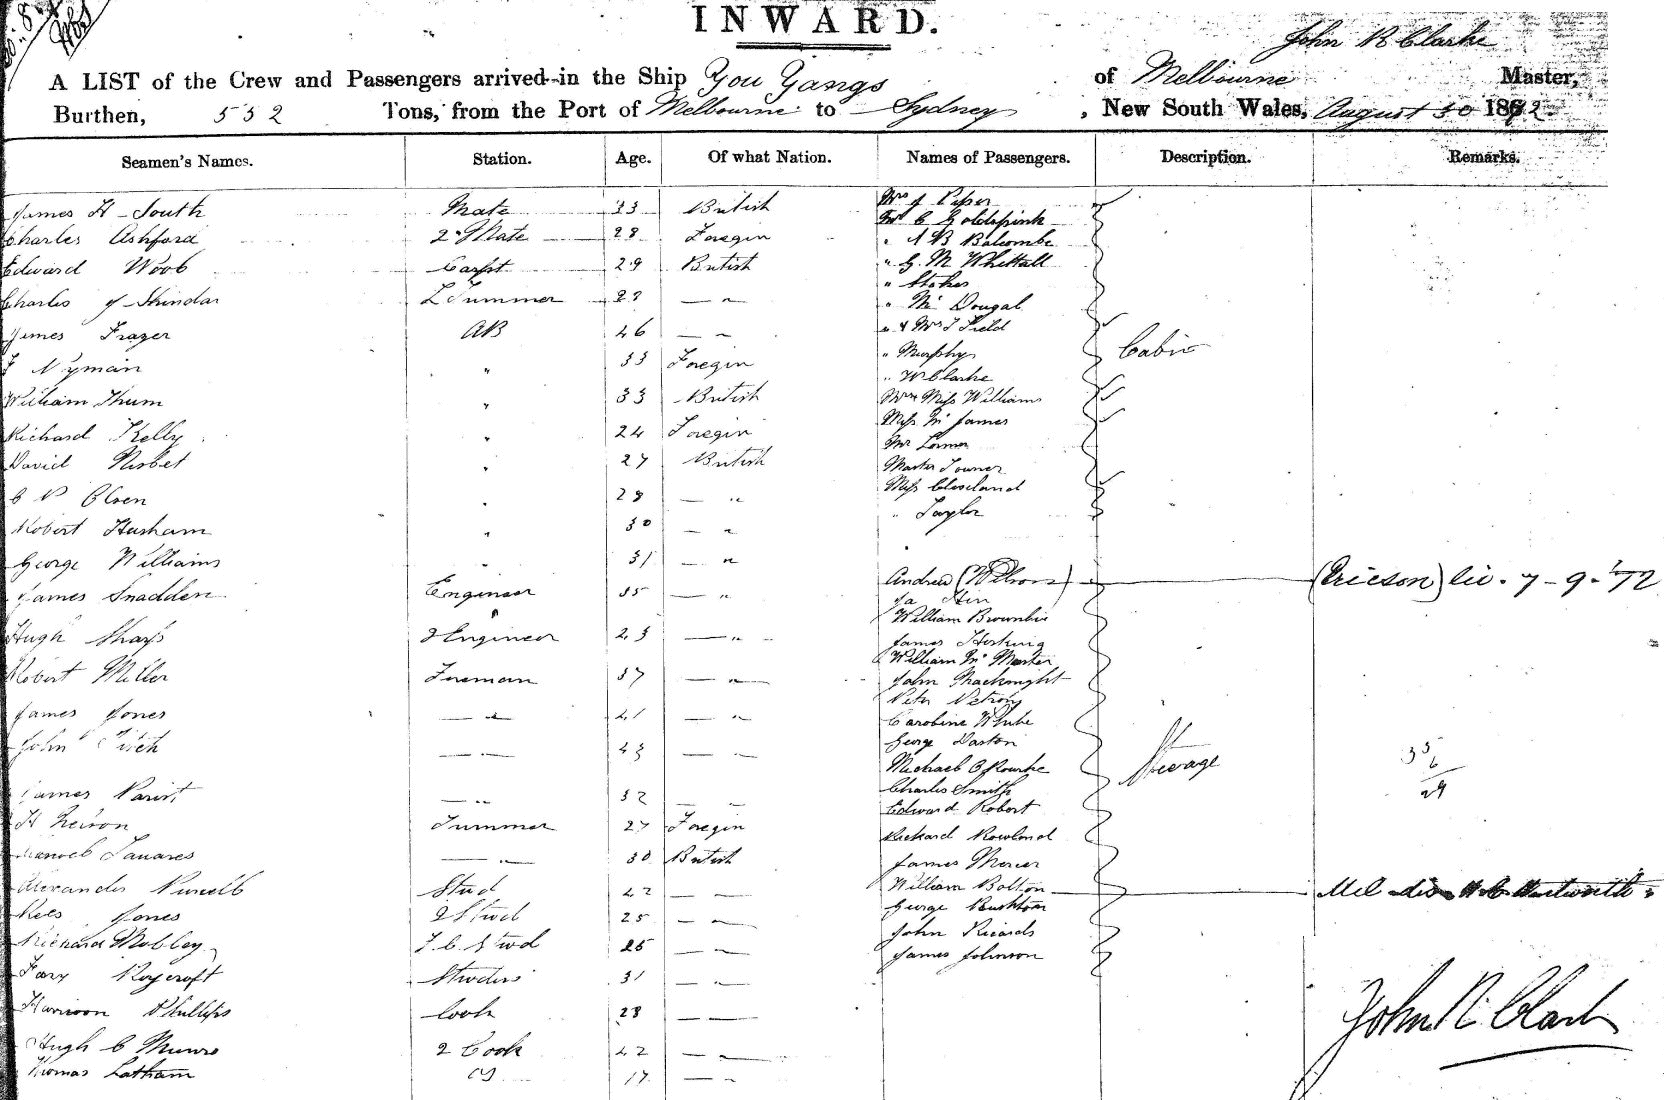 INWARD.
John R Clarke
A LIST of the Crew and Passengers arrived in the Ship You Yangs of Melbourne Master,
Burthen, 532 Tons, from the Port of Melbourne to Sydney, New South Wales, August 30 1872.
Seamen's Names. Station. Age. Of what Nation. Names of Passengers. Description. Remarks.
James H South Mate 33 British
Charles Ashford 2 Mate 28 Foregin
Edward Woob Carpt 29 British
Charles J Shindar L Tummer
James Frazer AB 46 — "
J Nyman " 33 Foregin
William Thum " 33 British
Richard Kelly " 24 Foregin
David Nisbet " 27 British
Olsen " 28 — "
Robert Husham " 30 — "
George Williams " 31 — "
James Snadden Engineer 35 — "
Hugh Sharp 2 Engineer 23 — "
Robert Miller Fireman 37 — "
James Jones — " 41 — "
John Fitch — " 43 — "
James 32 — —
H Tummer 27 Foregin
Tauares — " 30 British
Alexander Stud 42 — —
Rees Jones 2 Stwd 25 — "
Richard Mobley F. C. Stwd 25 — "
Roycroft 31 — "
Harrison Phillips Cook 28 — —
Hugh C Munro 2 Cook 42 — "
Thomas Latham 17 — "
Mrs J Piper
C Goldspink
" A B Balcombe
" G. M Whittall
" Stokes
" Mc Dougal
" & Mrs T Field
" Murphy
" W Clarke
Mrs & Miss Williams
Miss Mc James
Mr
Master
Miss Cleveland
" Taylor
Cabin
Andrew (Wilson) (Ericson) lic. 7-9-'72
Ja Hin
William Brownbie
James Hosking
William Mc Master
John Macknight
Peter
Caroline White
George Darton
Michael O Rourke
Charles Smith
Edward Robert
Richard Rowland
James Mercer
William Bolton
George Rushton
John Ricards
James Johnson
Stwage
35
6
29
John R. Clark